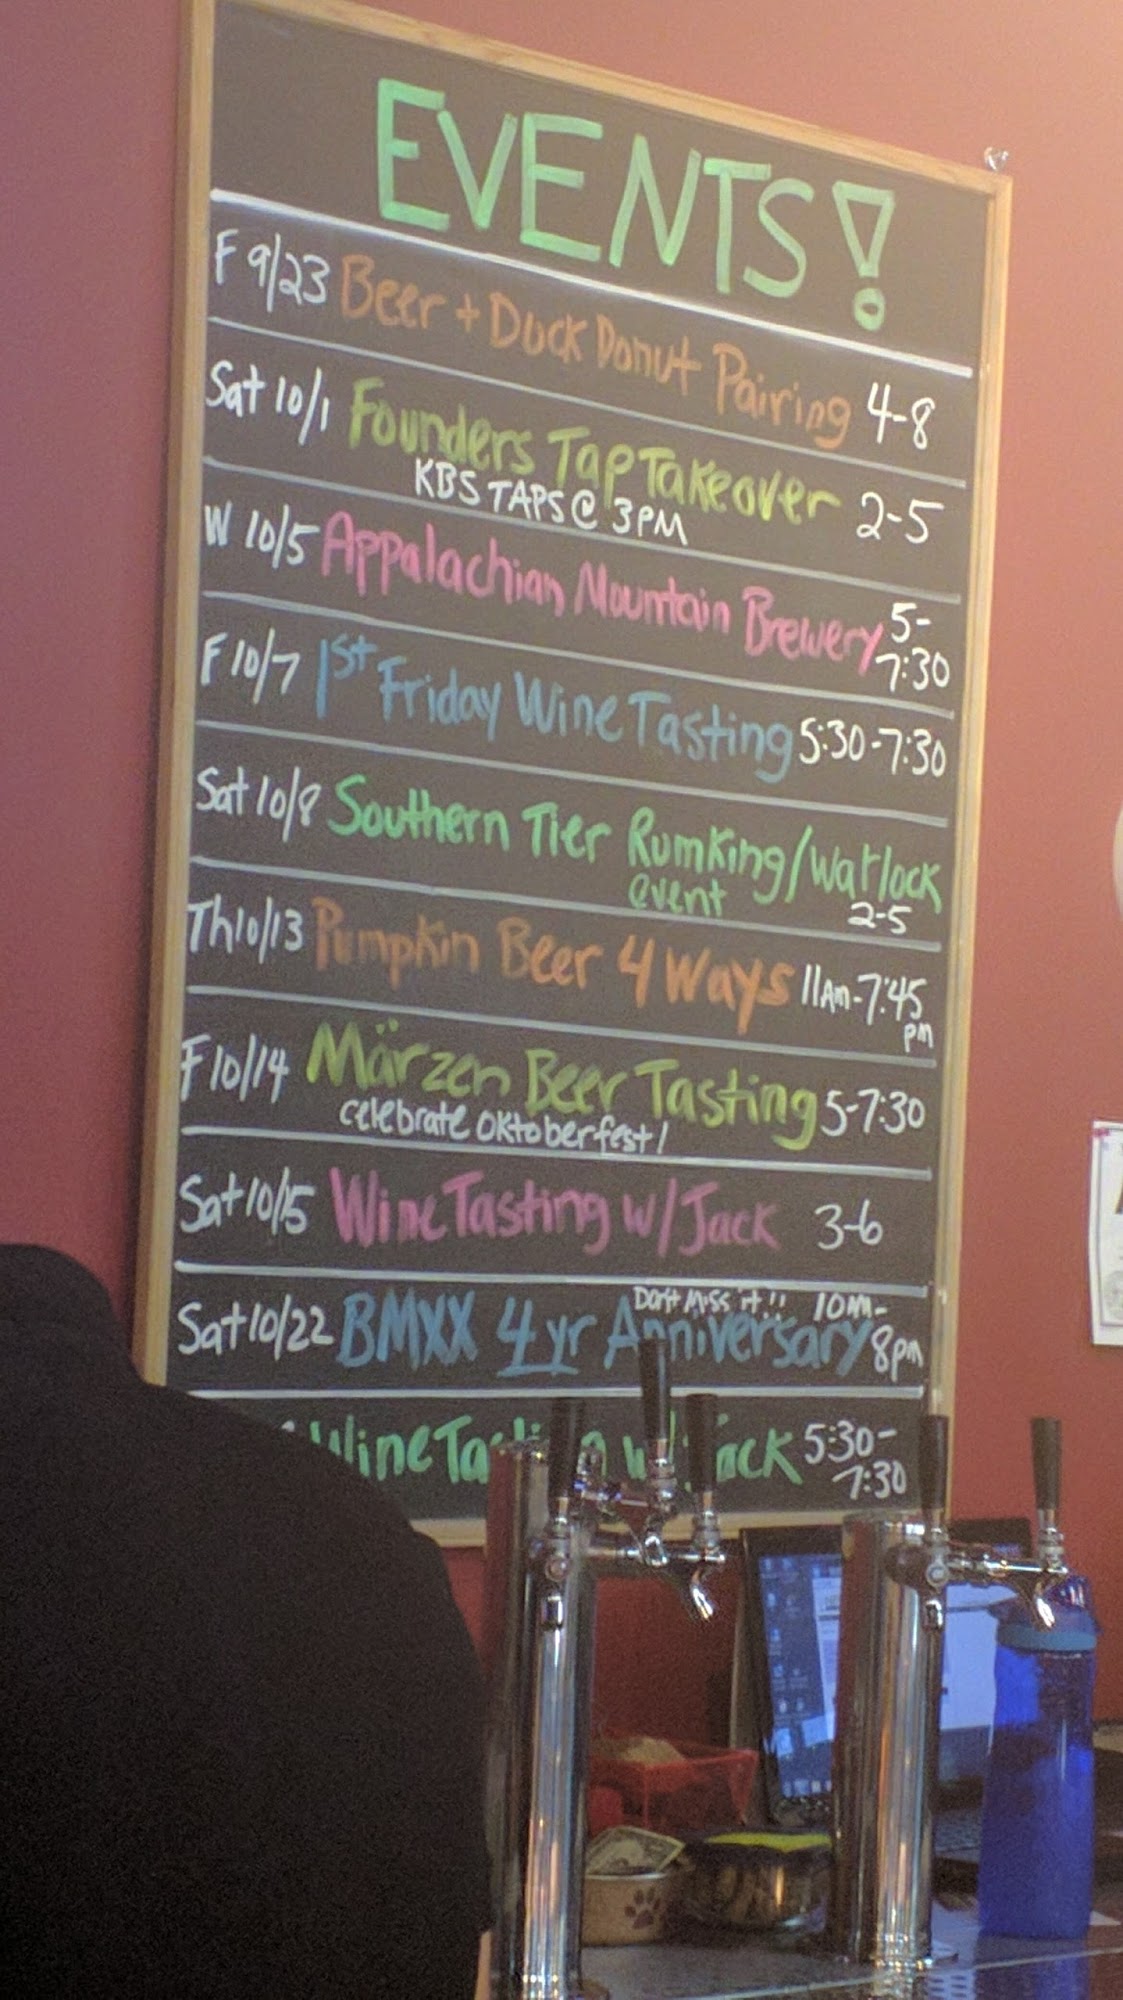 EVENTS!
F 9/23 Beer + Duck Donut Pairing 4-8
Sat 10/1 Founders Tap Takeover 2-5
KBS TAPS @ 3PM
W 10/5 Appalachian Mountain Brewery 5-
7:30
F 10/7 1st Friday Wine Tasting 5:30-7:30
Sat 10/8 Southern Tier Rumking/Warlock
event 2-5
Th 10/13 Pumpkin Beer 4 Ways 11Am-7:45
pm
F 10/14 Märzen Beer Tasting 5-7:30
celebrate Oktoberfest!
Sat 10/15 Wine Tasting w/Jack 3-6
Don't Miss it!! 10AM-
Sat 10/22 BMXX 4 yr Anniversary 8pm
Wine 5:30-
7:30